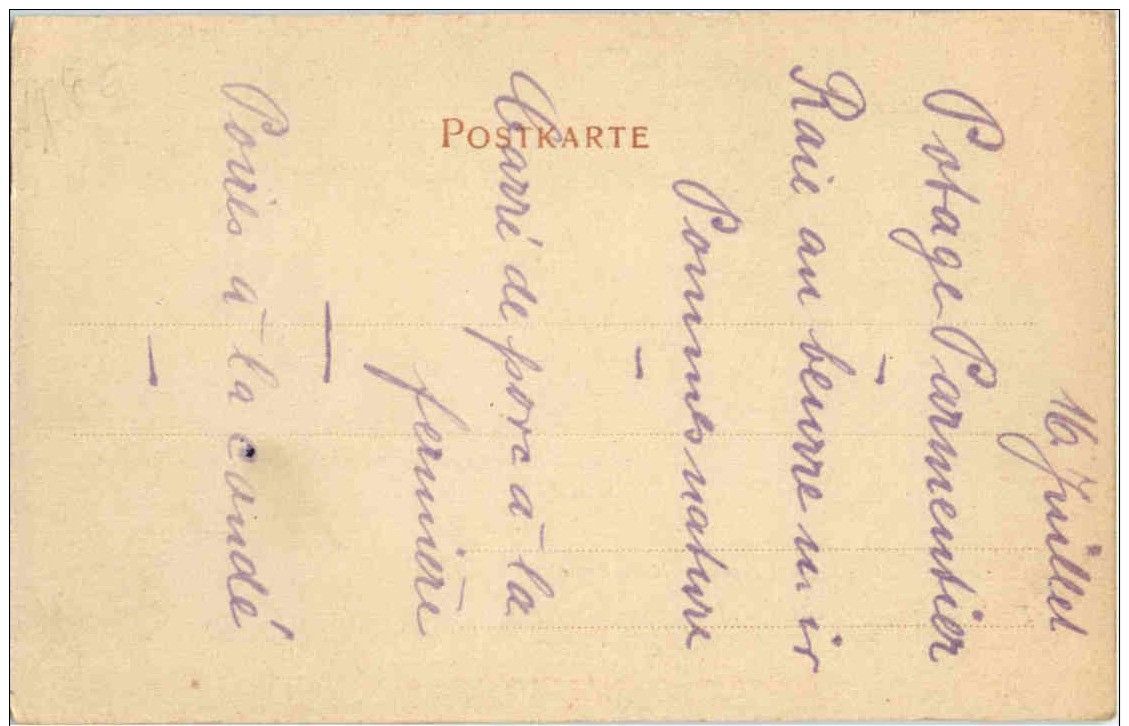 POSTKARTE
16 Juillet
Potage Parmentier
Raie au beurre n. ir
Pommes nature
Carré de porc à la
fermière
Poires à la condé